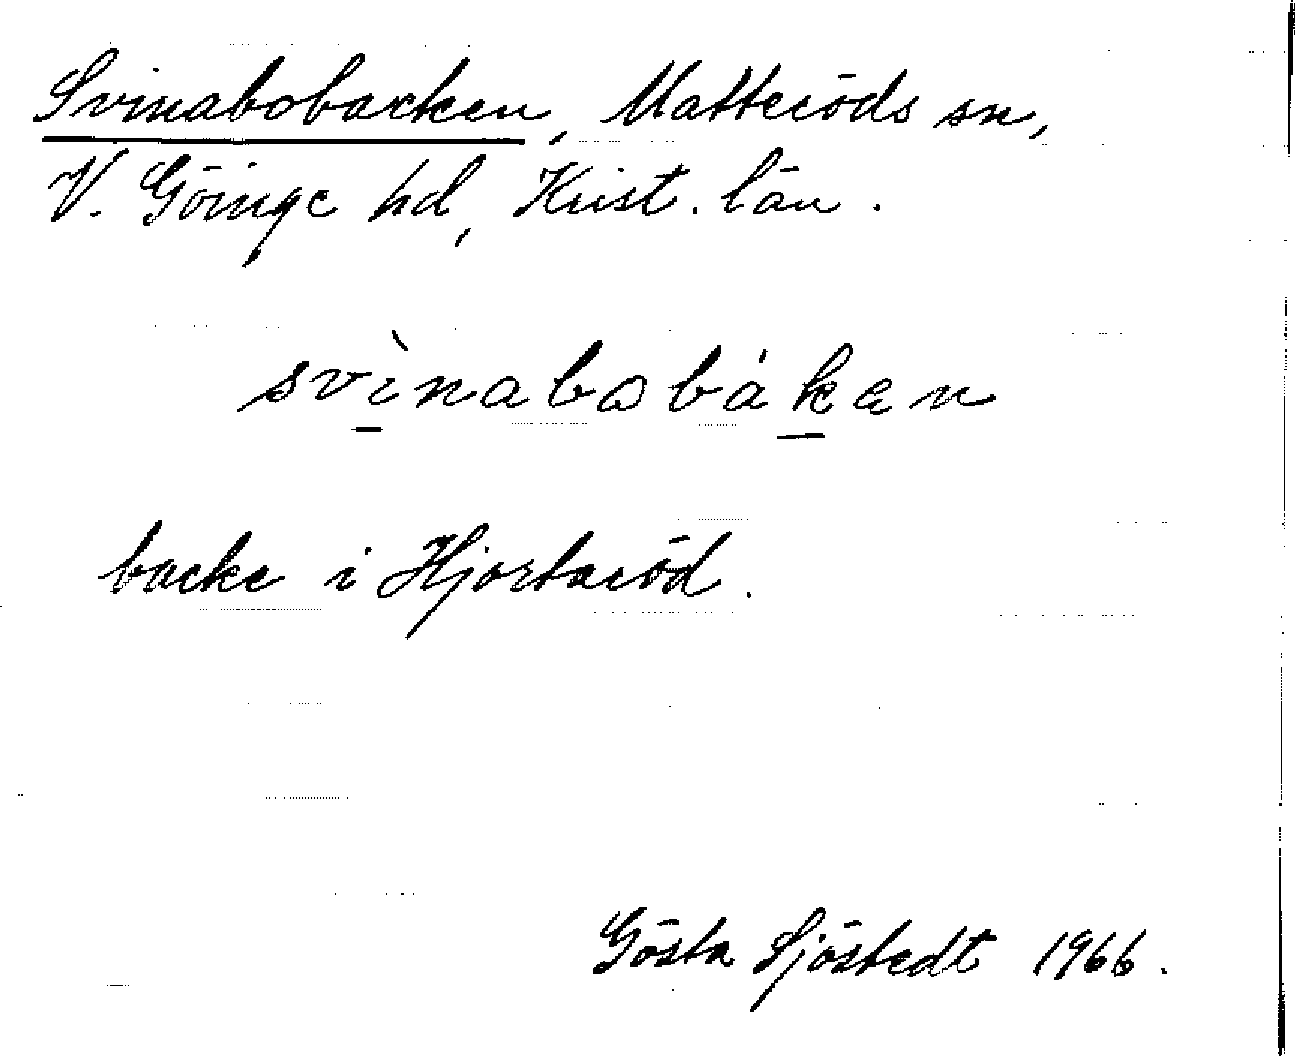 Svinabobacken, Matteröds sn,
V. Göinge hd, Krist. län.
svìnabobáken
backe i Hjortaröd.
Gösta Sjöstedt 1966.